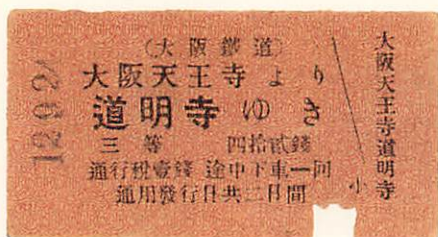 (大阪鐵道)
大阪天王寺より
道明寺ゆき
三等 四拾貳錢
通行税壹錢 途中下車一回
通用發行日共二日間
大阪天王寺道明寺
小
12.9.2